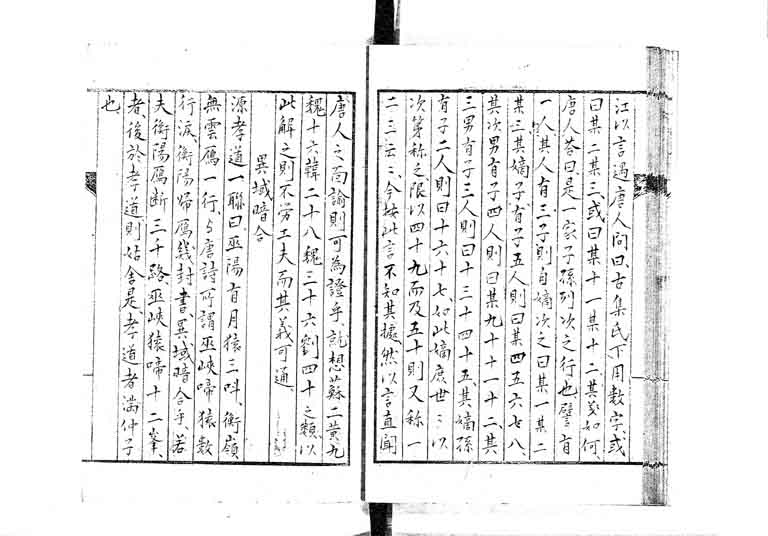 江以言遇唐人問曰古集氏下用数字或
曰某二某三或曰某十一某十二其義如何
唐人答曰是一家子孫列次之行也譬有
一人其人有三子則自嫡次之曰某一某二
某三其嫡子有子五人則曰某四五六七八
其次男有子四人則曰某九十十一十二其
三男有子三人則曰十三十四十五其嫡孫
有子二人則曰十六十七如此嫡庶世〻以
次第称之限以四十九而及五十則又称一
二三云〻今按此言不知其據然以言直聞
唐人之面諭則可為證乎説想蘇二黄九
魏十六韓二十八魏三十六劉四十之類以
此解之則不労工夫而其義可通
異域暗合
源孝道一聯曰巫陽有月猿三叫衡嶺
無雲鴈一行与唐詩所謂巫峡啼猿数
行涙衡陽帰鴈幾封書異域暗合乎若
夫衡陽鴈断三千路巫峡猿啼十二峯
者後於孝道則姑舎是孝道者満仲子
也